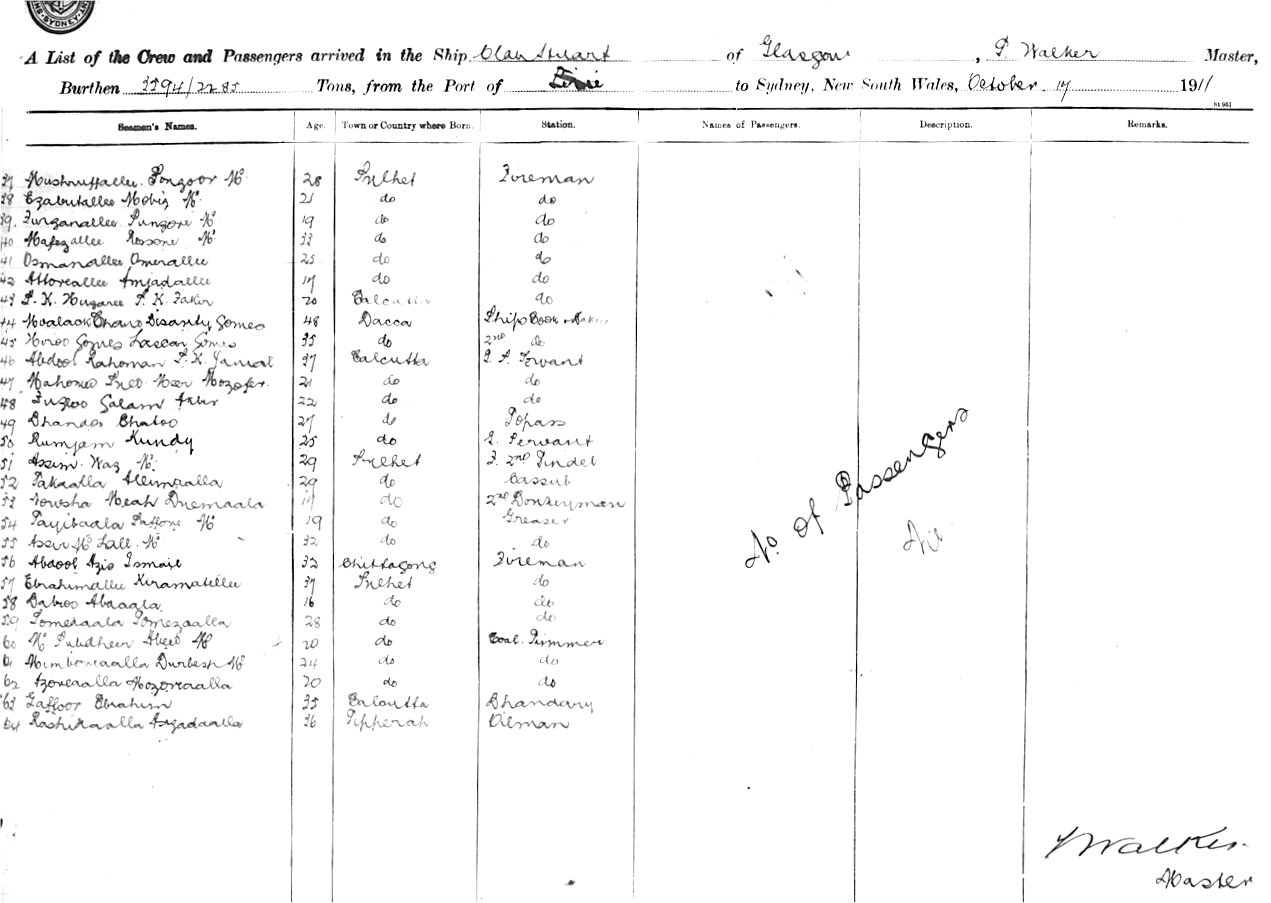 SYDNEY
A List of the Crew and Passengers arrived in the Ship Clan Stuart of Glasgow, P Walker Master,
Burthen 3594/2285 Tons, from the Port of to Sydney, New South Wales, October 17 1911
St 961
Seamen's Names. Age. Town or Country where Born. Station. Names of Passengers. Description. Remarks.
37 Mushruffallee Sonzoor Mº 28 Sylhet Fireman
38 Ezabutallee Mobiz Mº 21 do do
39. Furganallee Sungore Mº 19 do do
40 Mafezallee Rossone Mº 33 do do
41 Osmanallee Omerallee 25 do do
42 Attoreallee Amjadallee 17 do do
43 S. K. Huzaree S. K. Fakir 20 Calcutta do
44 Moalack Chand Disanty Gomes 48 Dacca Ships Cook
45 Hiroo Gomes Lascar Gomes 35 do 2nd do
46 Abdool Rahoman S. K. 37 Calcutta
47 Mahomed Syed Meer Mozofer 21 do do
48 Fuzloo Galam Akbir 22 do do
49 Dhandoo Chatoo 27 do Topass
50 Rumjam Kundy 25 do E. Servant
51 Assim Waz Mº. 29 Sylhet F. 2nd Tindel
52 Sakaalla Aleimaalla 29 do Cassub
53 Towsha Meah Duemaala 19 do 2nd Donkeyman
54 Sayibaala Saffore Mº 19 do Greaser
55 Assir Mº Lall Mº 32 do do
56 Abdool Azis Ismail 32 Chittagong Fireman
57 Ebrahimallee Kiramatallee 37 Sylhet do
58 Dabroo Abdaala 16 do do
59 Somedaala Somezaalla 28 do do
60 Mº Abeed Mº 20 do Coal Trimmer
61 Durbesh Mº 24 do do
62 Azoreaalla Mozoreaalla 20 do do
63 Gaffoor Ebrahim 35 Calcutta Bhandary
64 Rashidaalla Asgadaalla 36 Tipperah Oilman
No. of Passengers
Nil
P Walker.
Master